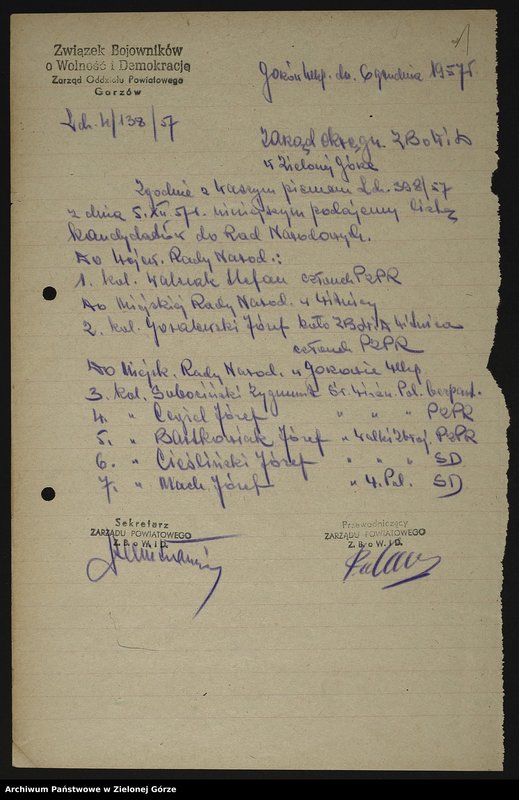 Związek Bojowników
o Wolność i Demokrację
Zarząd Oddziału Powiatowego
Gorzów
Gorzów Wlkp. dn. 6 grudnia 1957 r.
L.dz. W/138/57
Zarząd Okręgu ZBoWiD
w Zielonej Górze
Zgodnie z waszym pismem L.dz. 398/57
z dnia 5.XII.57r. niniejszym podajemy listę
kandydatów do Rad Narodowych.
Do Wojew. Rady Narod.:
1. kol. Walczak Stefan członek PZPR
Do Miejskiej Rady Narod. w Witnicy
2. kol. Goralewski Józef koło ZBoWiD Witnica
członek PZPR
Do Miejsk. Rady Narod. w Gorzowie Wlkp.
3. kol. Zygmunt b. więźn. Pol. bezpart.
4. " Józef " " " PZPR
5. " Bartkowiak Józef " Walki Zbroj. PZPR
6. " Cieśliński Józef " " " SD
7. " Mach Józef " W. Pol. SD
Sekretarz
ZARZĄDU POWIATOWEGO
Z. B o W. i D.
Przewodniczący
ZARZĄDU POWIATOWEGO
Z. B o W. i D.
Archiwum Państwowe w Zielonej Górze